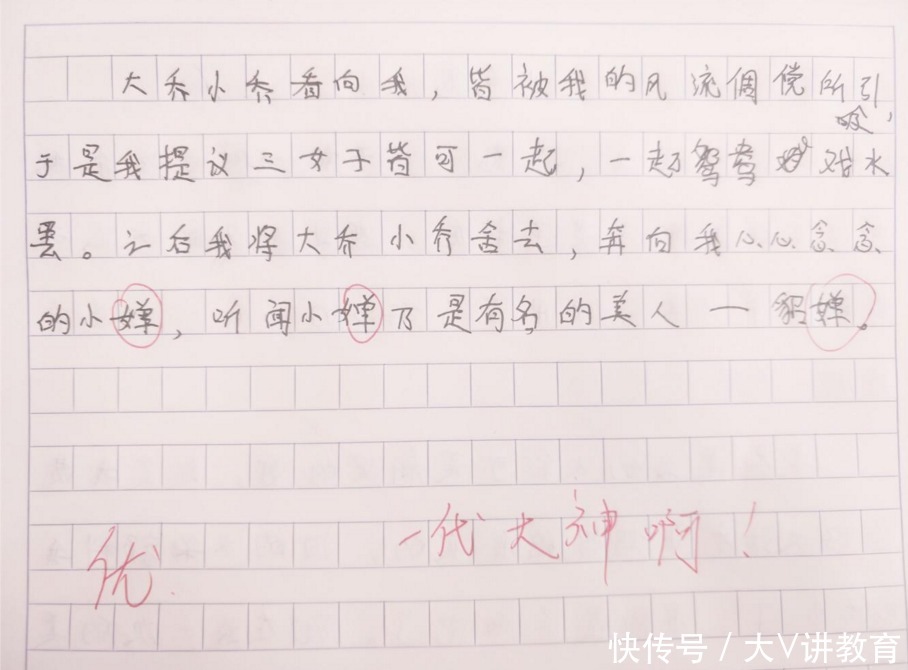 大乔小乔看向我，皆被我的风流倜傥所引
吸，
于是我提议三女子皆可一起，一起鸳鸯戏水
罢。之后我将大乔小乔舍去，奔向我心心念念
的小婵，听闻小婵乃是有名的美人一貂婵。
优
一代大神啊！
快传号 / 大V讲教育